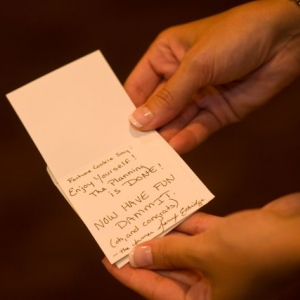 "Fortune Cookie Say:
Enjoy Yourself!
The Planning
is DONE!
NOW HAVE FUN
DAMMIT.
(oh, and congrats)
- The